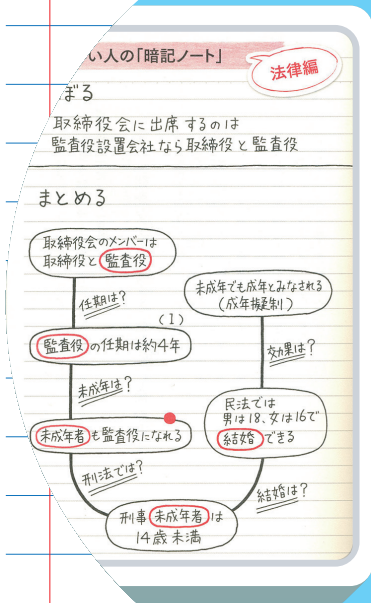 い人の「暗記ノート」
法律編
ぼる
取締役会に出席するのは
監査役設置会社なら取締役と監査役
まとめる
取締役会のメンバーは
取締役と監査役
任期は?
(1)
監査役の任期は約4年
未成年は?
未成年者も監査役になれる
刑法では?
刑事未成年者は
14歳未満
未成年でも成年とみなされる
(成年擬制)
効果は?
民法では
男は18、女は16で
結婚できる
結婚は?